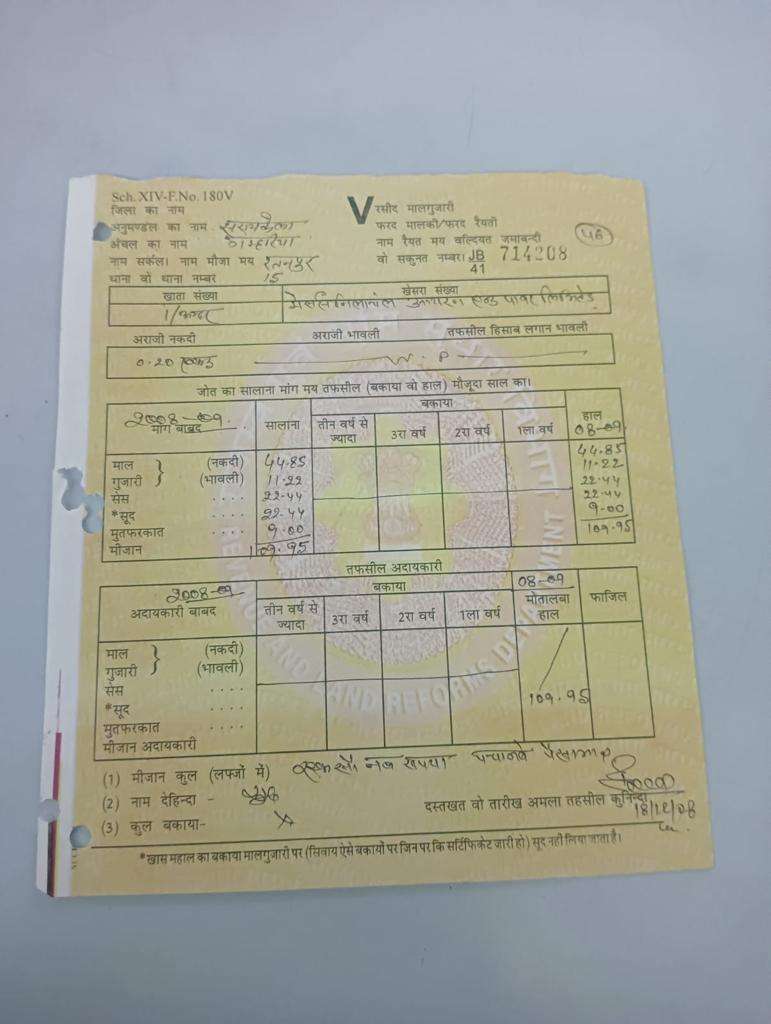 Sch. XIV-F.No. 180V
जिला का नाम
अनुमण्डल का नाम सरायकेला
अंचल का नाम गम्हरिया
नाम सर्कल। नाम मौजा मय रतनपुर
थाना वो थाना नम्बर 15
V रसीद मालगुजारी
फरद मालकी/फरद रैयती
नाम रैयत मय वल्दियत जमाबन्दी
वो सकुनत नम्बर। JB 41 714208
46
खाता संख्या खेसरा संख्या
1/ मेसर्स निलांचल एण्ड पावर लिमिटेड
अराजी नकदी अराजी भावली तफसील हिसाब लगान भावली
0.20 एकड़
जोत का सालाना मांग मय तफसील (बकाया वो हाल) मौजूदा साल का।
2008-09 मांग बाबद सालाना बकाया हाल 08-09
तीन वर्ष से ज्यादा 3रा वर्ष 2रा वर्ष 1ला वर्ष
माल (नकदी) 44.85 44.85
गुजारी (भावली) 11.22 11.22
सेस .... 22.44 22.44
*सूद .... 22.44 22.44
मुतफरकात .... 9.00 9.00
मीजान 109.95 109.95
तफसील अदायकारी
2008-09 अदायकारी बाबद बकाया 08-09 मोतालबा हाल फाजिल
तीन वर्ष से ज्यादा 3रा वर्ष 2रा वर्ष 1ला वर्ष
माल (नकदी)
गुजारी (भावली)
सेस ....
*सूद .... 109.95
मुतफरकात ....
मीजान अदायकारी
(1) मीजान कुल (लफ्जों में) एक सौ नव रुपया पन्चानवे पैसा मात्र
(2) नाम देहिन्दा -
दस्तखत वो तारीख अमला तहसील कुनिन्दा
18/12/08
(3) कुल बकाया- X
*खास महाल का बकाया मालगुजारी पर (सिवाय ऐसे बकायों पर जिन पर कि सर्टिफिकेट जारी हो) सूद नहीं लिया जाता है।